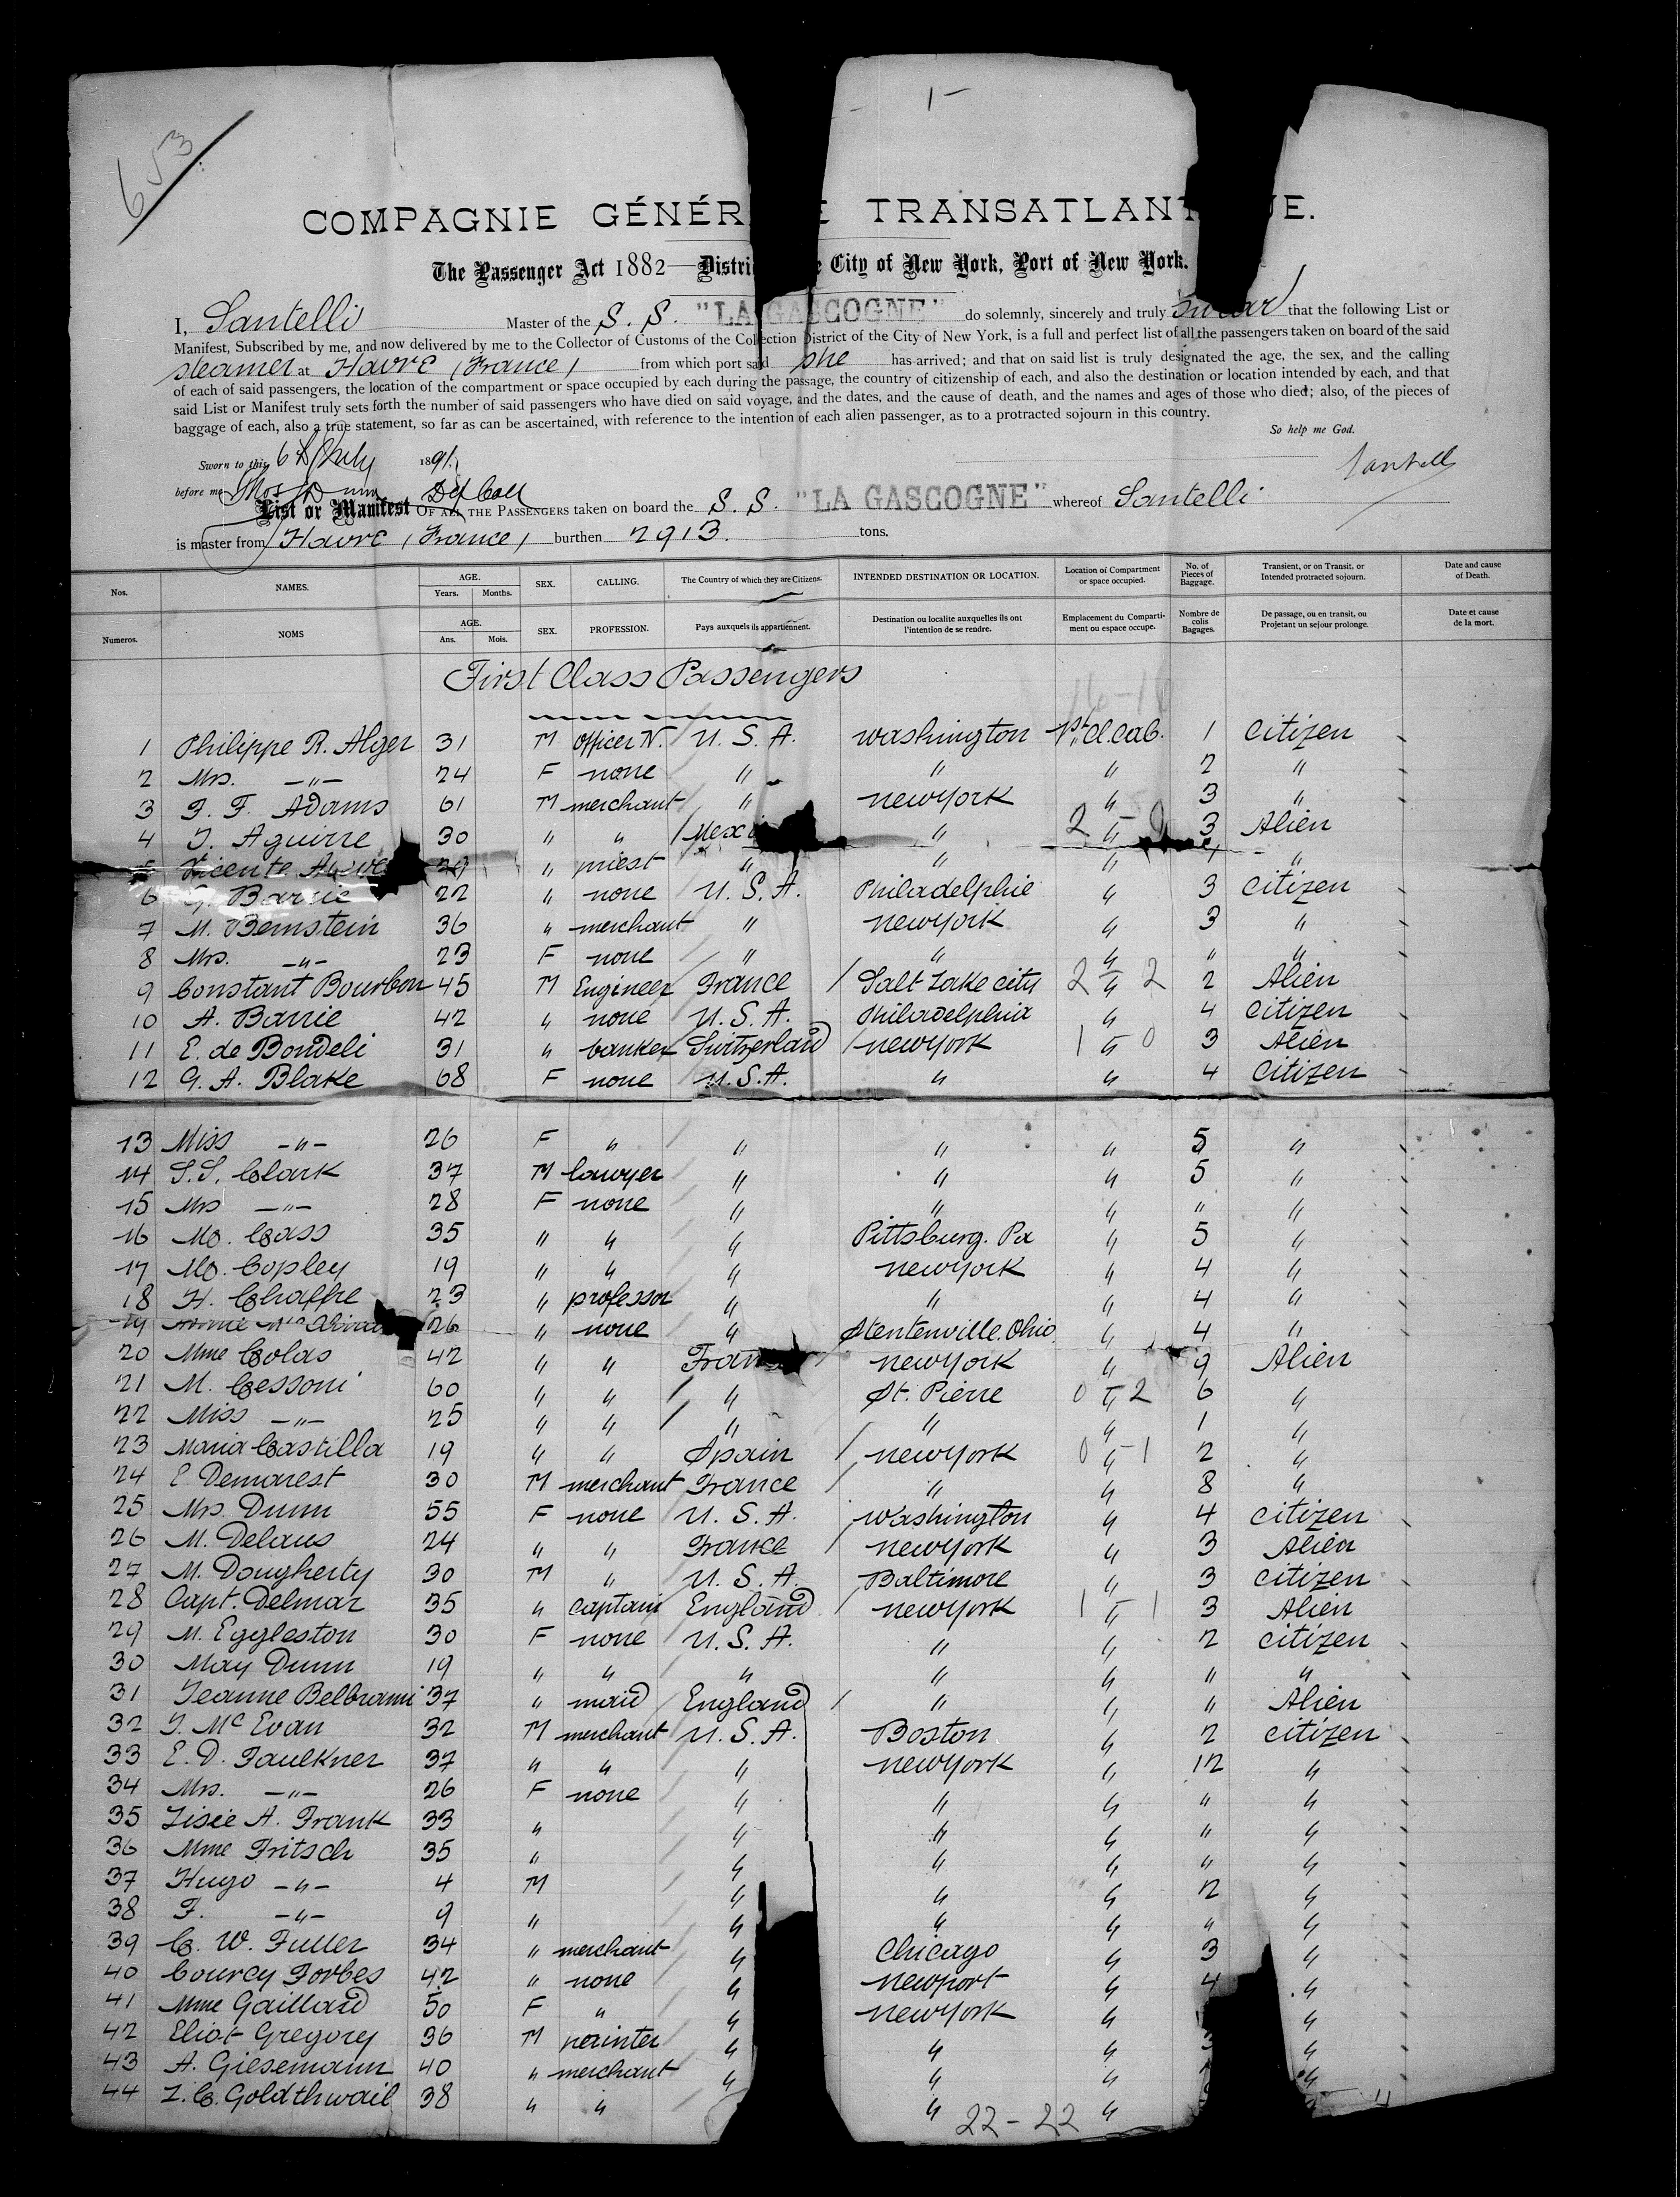 653
1-
COMPAGNIE GÉNÉR E TRANSATLANT UE.
The Passenger Act 1882—Distri e City of New York, Port of New York.
I, Santelli Master of the S. S. "LA GASCOGNE" do solemnly, sincerely and truly swear that the following List or
Manifest, Subscribed by me, and now delivered by me to the Collector of Customs of the Collection District of the City of New York, is a full and perfect list of all the passengers taken on board of the said
steamer at Havre (France) from which port said she has arrived; and that on said list is truly designated the age, the sex, and the calling
of each of said passengers, the location of the compartment or space occupied by each during the passage, the country of citizenship of each, and also the destination or location intended by each, and that
said List or Manifest truly sets forth the number of said passengers who have died on said voyage, and the dates, and the cause of death, and the names and ages of those who died; also, of the pieces of
baggage of each, also a true statement, so far as can be ascertained, with reference to the intention of each alien passenger, as to a protracted sojourn in this country.
So help me God.
Sworn to this 6 July 1891.
Santelli
before me Thos Dunn Dep Coll
List or Manifest OF ALL THE PASSENGERS taken on board the S. S. "LA GASCOGNE" whereof Santelli
is master from Havre (France) burthen 2913. tons.
Nos. NAMES. AGE. Years. Months. SEX. CALLING. The Country of which they are Citizens. INTENDED DESTINATION OR LOCATION. Location of Compartment or space occupied. No. of Pieces of Baggage. Transient, or on Transit, or Intended protracted sojourn. Date and cause of Death.
Numeros. NOMS AGE. Ans. Mois. SEX. PROFESSION. Pays auxquels ils appartiennent. Destination ou localite auxquelles ils ont l'intention de se rendre. Emplacement du Comparti-ment ou espace occupe. Nombre de colis Bagages. De passage, ou en transit, ou Projetant un sejour prolonge. Date et cause de la mort.
First Class Passengers
1 Philippe R. Alger 31 M officer N. U. S. A. Washington 1st Cl. Cab. 1 citizen
2 Mrs. —"— 24 F none " " " 2 "
3 F. F. Adams 61 M merchant " newyork " 3 "
4 J. Aguirre 30 " " Mexi " 2 " 3 Alien
5 Vicente 29 " priest " " " "
6 G. Barrie 22 " none U. S. A. Philadelphie " 3 citizen
7 M. Bernstein 36 " merchant " newyork " 3 "
8 Mrs. —"— 23 F none " " " " "
9 Constant Bourbon 45 M Engineer France Salt Lake city 2 " 2 2 Alien
10 A. Barrie 42 " none U. S. A. Philadelphia " 4 citizen
11 E. de Bondeli 31 " banker Switzerland newyork 1 " 0 3 Alien
12 G. A. Blake 68 F none U. S. A. " " 4 citizen
13 Miss —"— 26 F " " " " 5 "
14 S. S. Clark 37 M lawyer " " " 5 "
15 Mrs —"— 28 F none " " " " "
16 Mo. Cass 35 " " " Pittsburg. Pa " 5 "
17 Mo. Copley 19 " " " newyork " 4 "
18 H. Chaffre 23 " professor " " " 4 "
19 26 " none " Stentenville. Ohio " 4 "
20 Mme Colas 42 " " Fran newyork " 9 Alien
21 M. Cessoni 60 " " " St. Pierre 0 " 2 6 "
22 Miss —"— 25 " " " " " 1 "
23 Maria Castilla 19 " " Spain newyork 0 " 1 2 "
24 E Demarest 30 M merchant France " " 8 "
25 Mrs. Dunn 55 F none U. S. A. Washington " 4 citizen
26 M. Delaus 24 " " France newyork " 3 Alien
27 M. Dougherty 30 M " U. S. A. Baltimore " 3 citizen
28 Capt. Delmar 35 " captain England newyork 1 " 1 3 Alien
29 M. Eggleston 30 F none U. S. A. " " 2 citizen
30 May Dunn 19 " " " " " " "
31 Jeanne Belbrami 37 " maid England " " " Alien
32 J. Mc Evan 32 M merchant U. S. A. Boston " 2 citizen
33 E. D. Faulkner 37 " " " newyork " 12 "
34 Mrs. —"— 26 F none " " " " "
35 Lisie A. Frank 33 " " " " " "
36 Mme Fritsch 35 " " " " " "
37 Hugo —"— 4 M " " " 2 "
38 F. —"— 9 " " " " " "
39 C. W. Fuller 34 " merchant " Chicago " 3 "
40 Courcy Forbes 42 " none " newport " 4 "
41 Mme Gaillard 50 F " " newyork " "
42 Eliot Gregory 36 M painter " " " "
43 A. Giesemann 40 " merchant " " " "
44 L. C. Goldthwail 38 " " " "
22-22